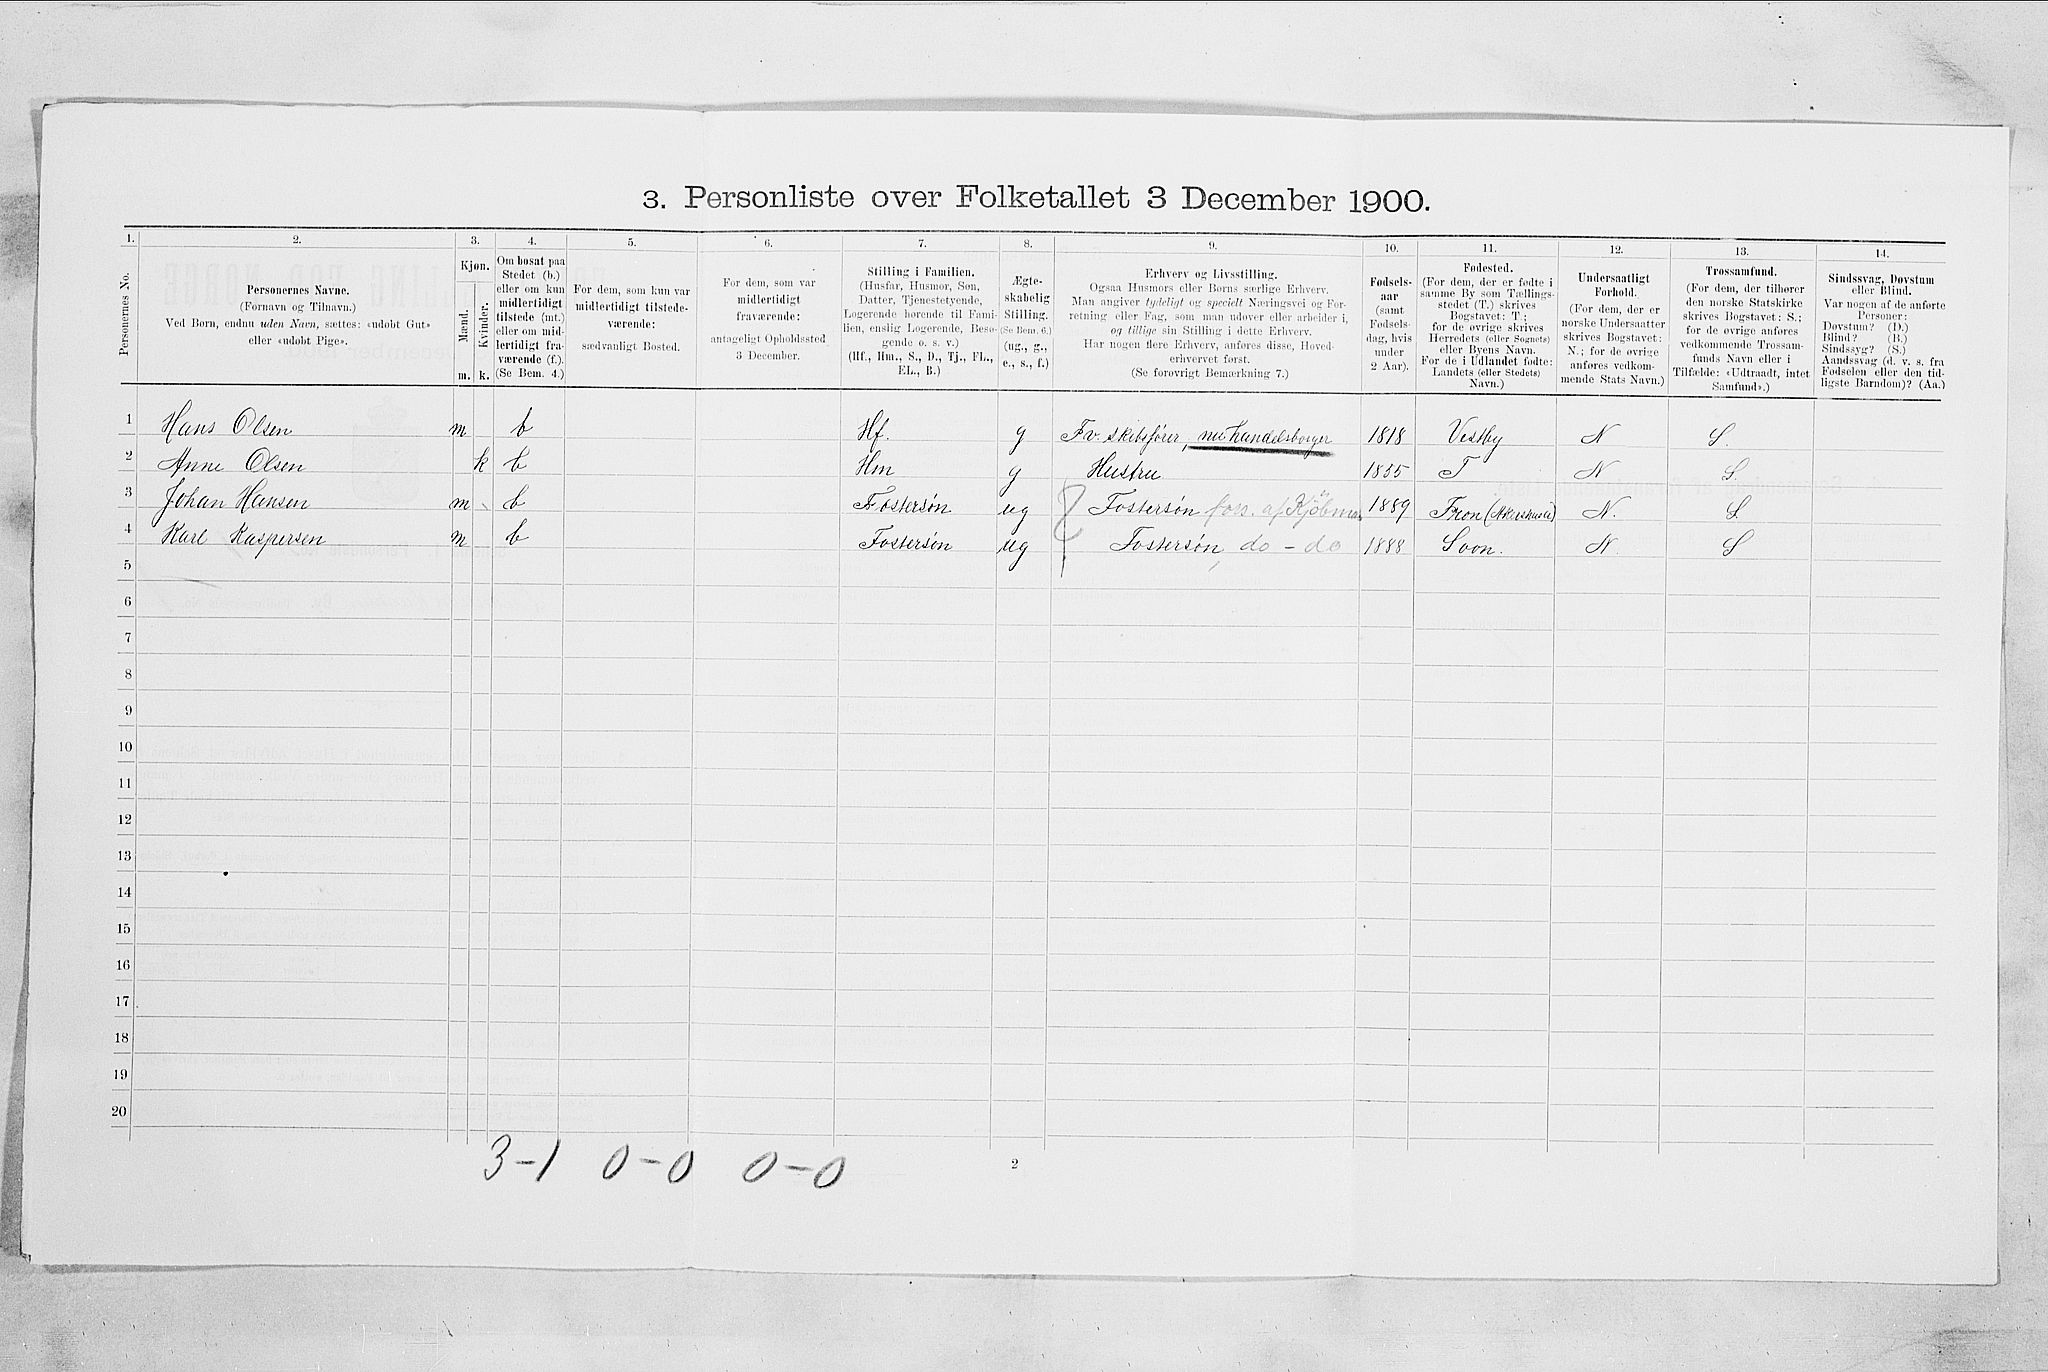 3. Personliste over Folketallet 3 December 1900.
1. 2. 3. 4. 5. 6. 7. 8. 9. 10. 11. 12. 13. 14.
Personernes No.
Personernes Navne.
(Fornavn og Tilnavn.)
Ved Børn, endnu uden Navn, sættes: «udøbt Gut»
eller «udøbt Pige».
Kjøn.
Mænd.
Kvinder.
m. k.
Om bosat paa
Stedet (b.)
eller om kun
midlertidigt
tilstede (mt.)
eller om mid-
lertidigt fra-
værende (f.).
(Se Bem. 4.)
For dem, som kun var
midlertidigt tilstede-
værende:
sædvanligt Bosted.
For dem, som var
midlertidigt
fraværende:
antageligt Opholdssted
3 December.
Stilling i Familien.
(Husfar, Husmor, Søn,
Datter, Tjenestetyende,
Logerende hørende til Fami-
lien, enslig Logerende, Besø-
gende o. s. v.)
(Hf., Hm., S., D., Tj., FL.,
EL., B.)
Ægte-
skabelig
Stilling.
(Se Bem. 6.)
(ug., g.,
e., s., f.)
Erhverv og Livsstilling.
Ogsaa Husmors eller Børns særlige Erhverv.
Man angiver tydeligt og specielt Næringsvei og For-
retning eller Fag, som man udøver eller arbeider i,
og tillige sin Stilling i dette Erhverv.
Har nogen flere Erhverv, anføres disse, Hoved-
erhvervet først.
(Se forøvrigt Bemærkning 7.)
Fødsels-
aar
(samt
Fødsels-
dag, hvis
under
2 Aar).
Fødested.
(For dem, der er fødte i
samme By som Tællings-
stedet (T.) skrives
Bogstavet: T.;
for de øvrige skrives
Herredets (eller Sognets)
eller Byens Navn.
For de i Udlandet fødte:
Landets (eller Stedets)
Navn.)
Undersaatligt
Forhold.
(For dem, der er
norske Undersaatter
skrives Bogstavet:
N.; for de øvrige
anføres vedkom-
mende Stats Navn.)
Trossamfund.
(For dem, der tilhører
den norske Statskirke
skrives Bogstavet: S.;
for de øvrige anføres
vedkommende Trossam-
funds Navn eller i
Tilfælde: «Udtraadt, intet
Samfund».)
Sindssvag, Døvstum
eller Blind.
Var nogen af de anførte
Personer:
Døvstum? (D.)
Blind? (B.)
Sindssyg? (S.)
Aandssvag (d. v. s. fra
Fødselen eller den tid-
ligste Barndom)? (Aa.)
1 Hans Olsen m b Hf. g Fv. skibsfører, nu handelsborger 1818 Vestby N S.
2 Anne Olsen k b Hm g Hustru 1835 T N S.
3 Johan Hansen m b Fostersøn ug Fostersøn fors. af Kjøbm 1889 Fron (Akershus) N. S
4 Karl Kaspersen m b Fostersøn ug Fostersøn, do - do 1888 Soon. N. S
5
6
7
8
9
10
11
12
13
14
15
16
17
18
19
20
3-1 0-0 0-0
2